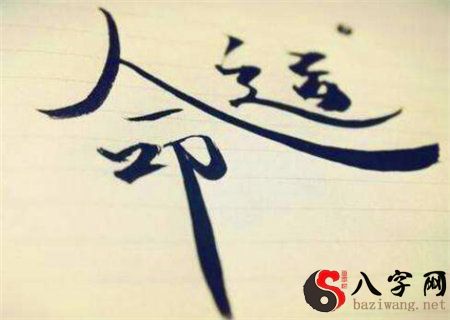 命运
八字网
baziwang.net